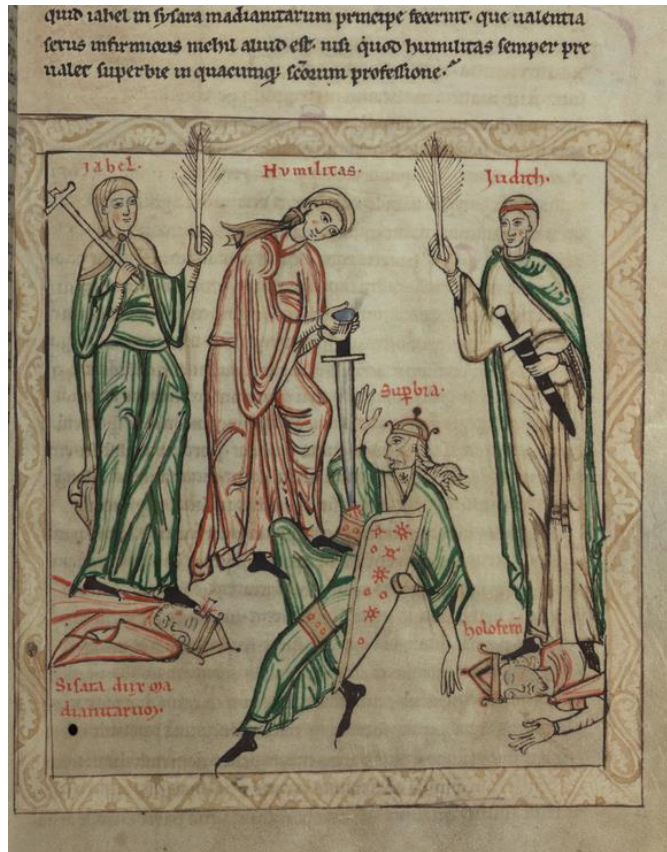 quid iahel in sysara madianitarum principe fecerint. que ualentia
serus infirmioris nichil aliud est. nisi quod humilitas semper pre
ualet superbie in quacumq; scōrum professione.
Iahel.
Humilitas.
Judith.
Supbia.
holofern̄
Sisara dux ma
dianitarum.